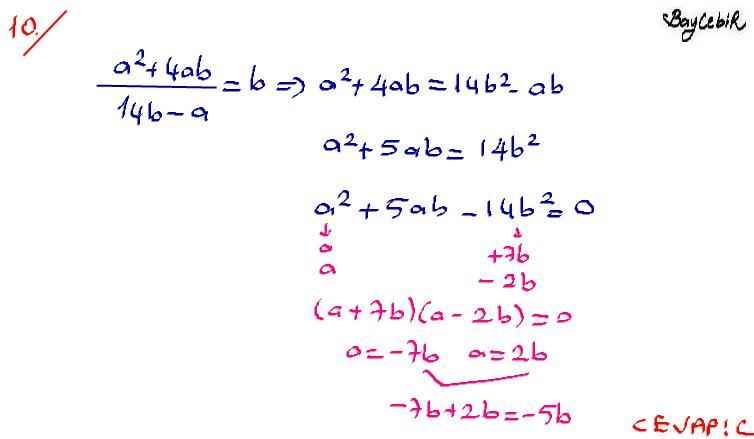 10.
BayCebiR
a²+4ab / 14b-a = b ⇒ a²+4ab = 14b²-ab
a²+5ab = 14b²
a²+5ab-14b²=0
↓ ↓
a +7b
a -2b
(a+7b)(a-2b)=0
a=-7b a=2b
-7b+2b=-5b
CEVAP:C